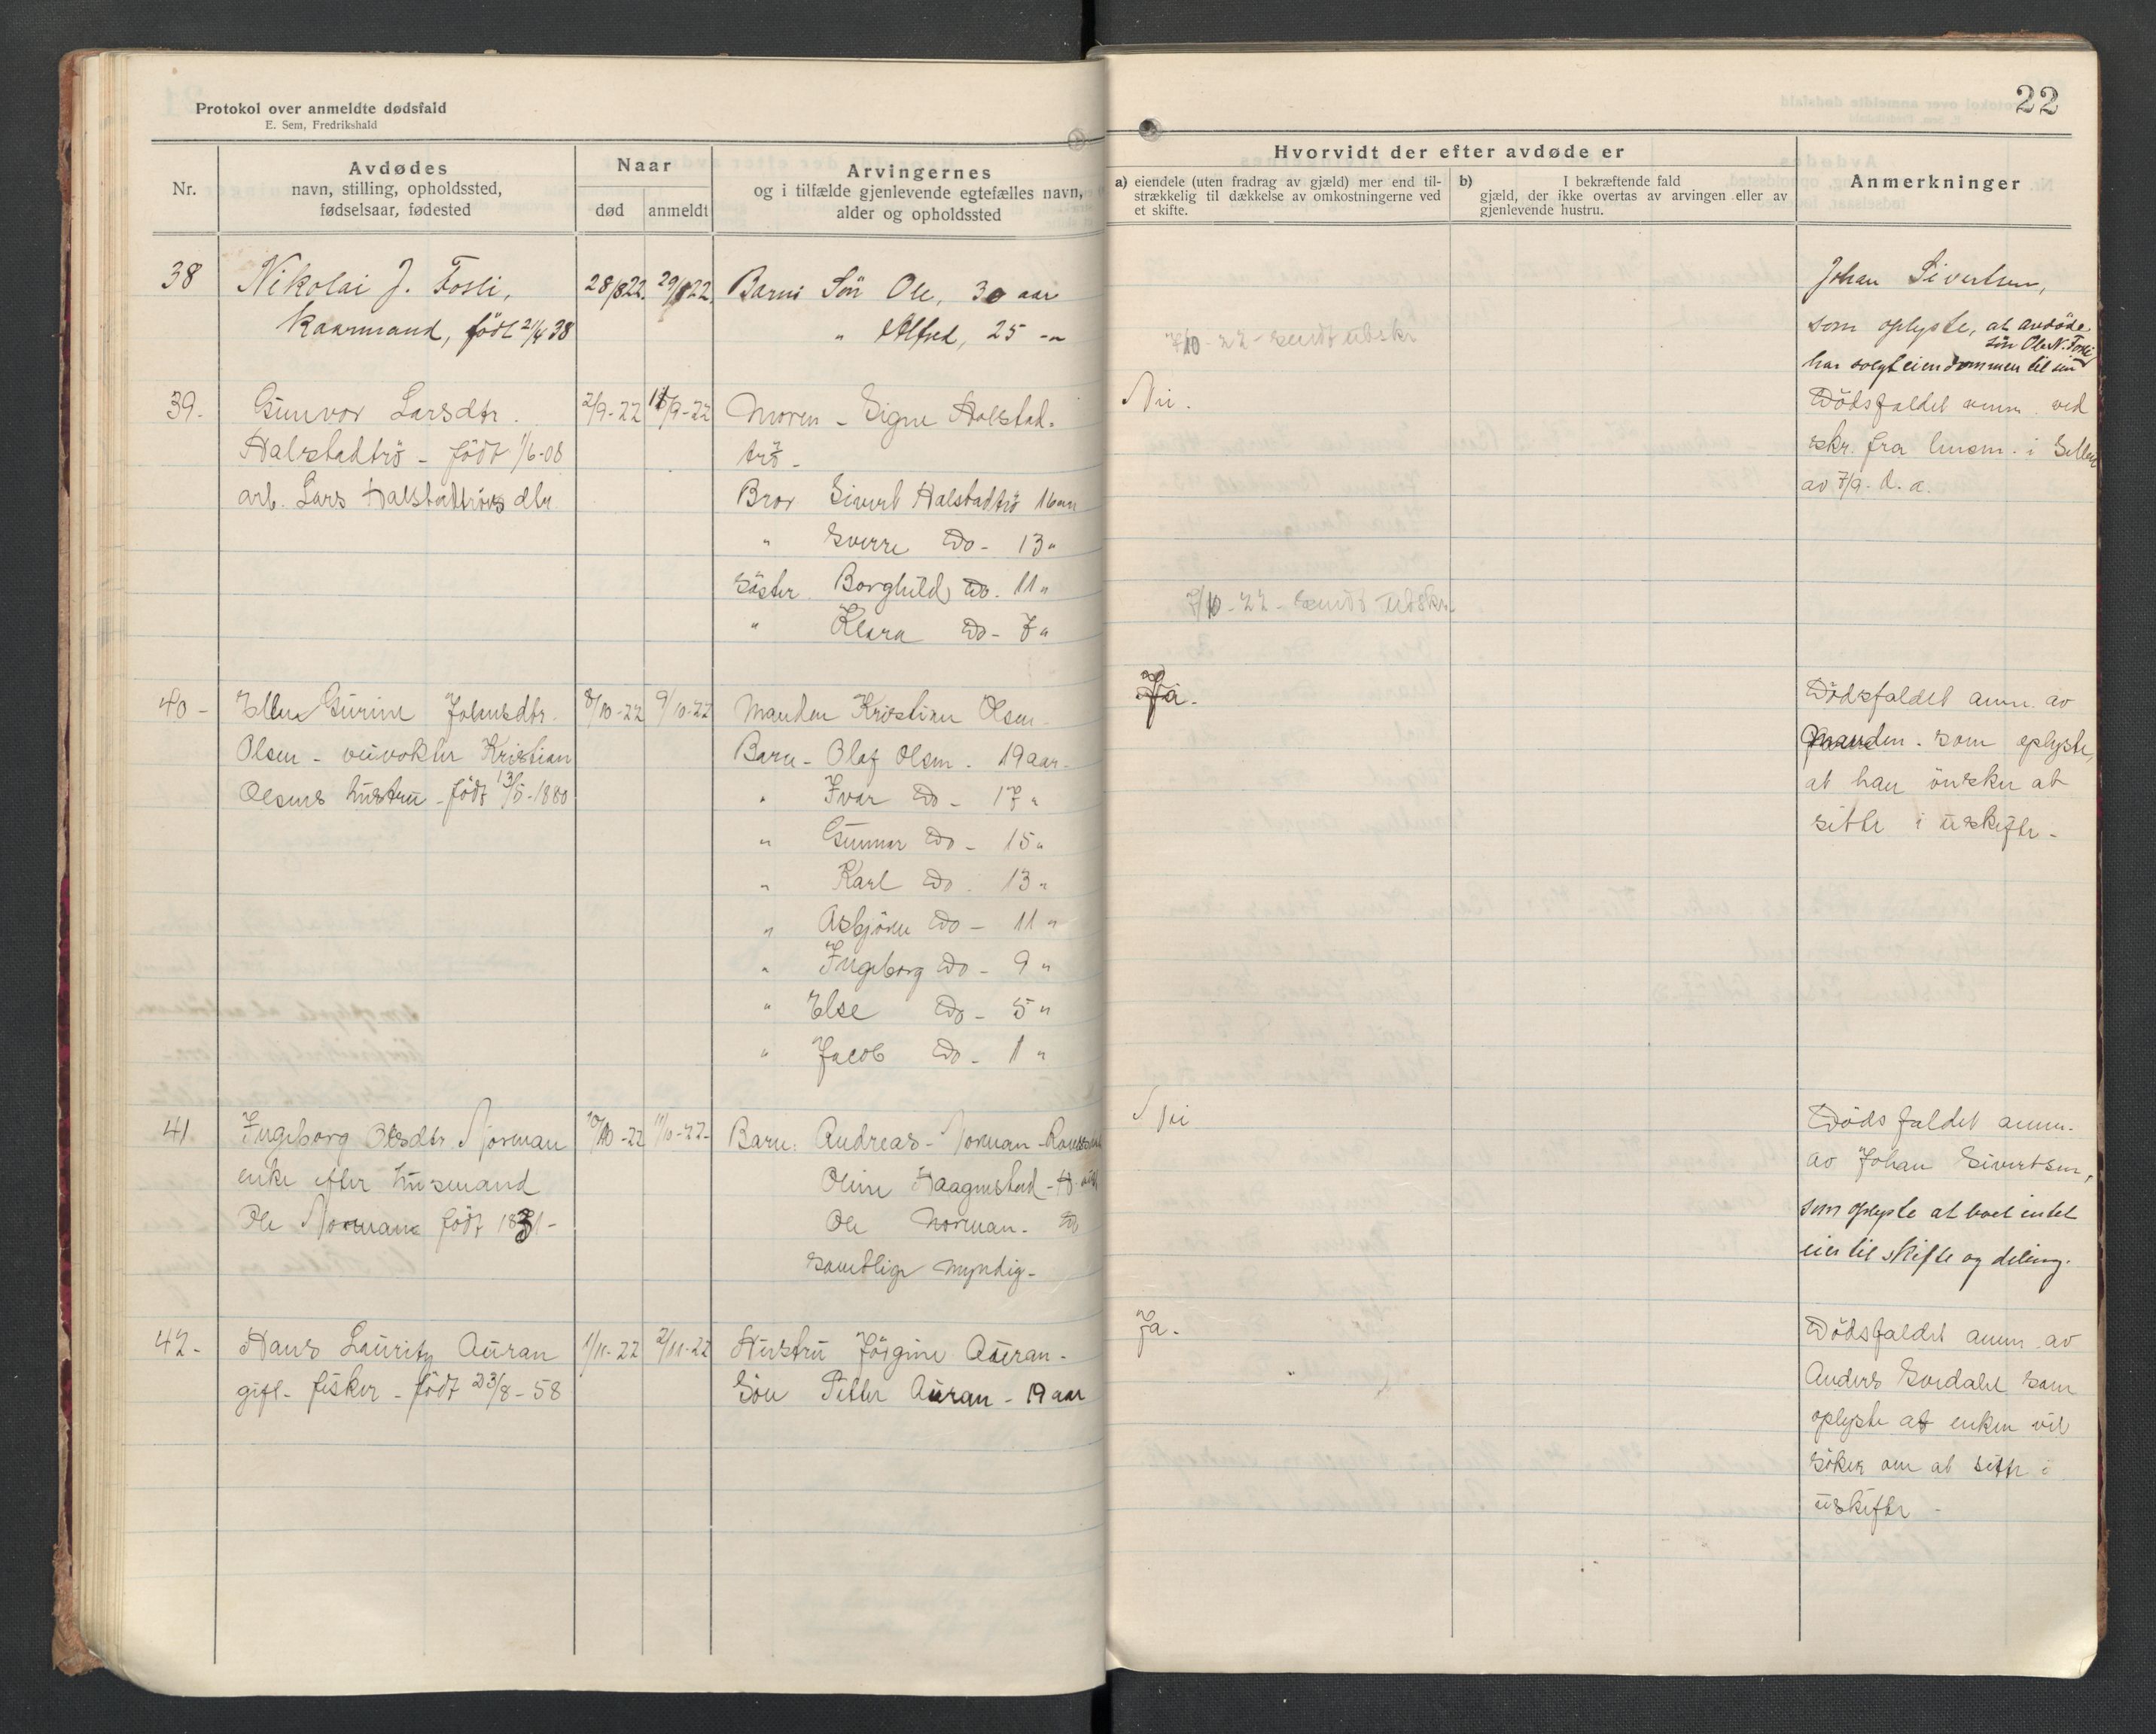 Protokol over anmeldte dødsfald
E. Sem, Fredrikshald
Nr.
Avdødes
navn, stilling, opholdssted,
fødselsaar, fødested
Naar
død
anmeldt
Arvingernes
og i tilfælde gjenlevende egtefælles navn,
alder og opholdssted
38
Nikolai J. Fosli,
Kaarmand, födt 21/4 38
28/8 22.
29/8 22
Barn: Sön Ole, 30 aar
" Alfred, 25 -"
39.
Gunvor Larsdtr.
Halstadtrö - födt 1/6-08
arb. Lars Halstadtrös dtr.
2/9-22
/9-22
Moren - Signe Halstad-
trö -
Bror Sivert Halstadtrö 16 aar
" Sverre Do - 13 "
Söster Borghild Do. 11 "
" Klara Do - 7 "
40-
Ellen Gurine Johnsdtr.
Olsen - veivokter Kristian
Olsens hustru - födt 13/5-1880
8/10-22
9/10-22
Manden Kristian Olsen -
Barn - Olaf Olsen - 19 aar -
" Ivar Do - 17 "
" Gunnar Do - 15 "
" Karl Do - 13 "
" Asbjörn Do - 11 "
" Ingeborg Do - 9 "
" Else Do - 5 "
" Jacob Do - 1 "
41
Ingeborg Olsdtr. Norman
enke efter husmand
Ole Norman födt 1831 -
10/10-22
11/10-22-
Barn: Andreas Norman -
Oline Haagenstad -
Ole Norman - Do
samtlige myndig -
42-
Hans Lauritz Auran
gift - fisker - födt 23/8-58
1/11-22
2/11-22
Hustru Jörgine Auran -
Sön Petter Auran - 19 aar
22
Hvorvidt der efter avdøde er
a) eiendele (uten fradrag av gjæld) mer end til-
strækkelig til dækkelse av omkostningerne ved
et skifte.
b) I bekræftende fald
gjæld, der ikke overtas av arvingen eller av
gjenlevende hustru.
Anmerkninger
Johan Sivertsen,
som oplyste, at avdöde
har solgt eiendommen til sin
sön Ole N. Fosli
7/10-22 - sendt utskr
Nei.
Dödsfaldet anm. ved
skr. fra lensm. i
av 7/9. d. a.
7/10-22 - sendt utskr.
Ja.
Dödsfaldet anm. av
manden - som oplyste,
at han önsker at
sitte i uskifte -
Nei
Dödsfaldet anm.
av Johan Sivertsen,
som oplyste at boet intet
eier til skifte og deling.
Ja.
Dödsfaldet anm. av
Anders Sverdahl som
oplyste at enken vil
söke om at sitte i
uskifte -